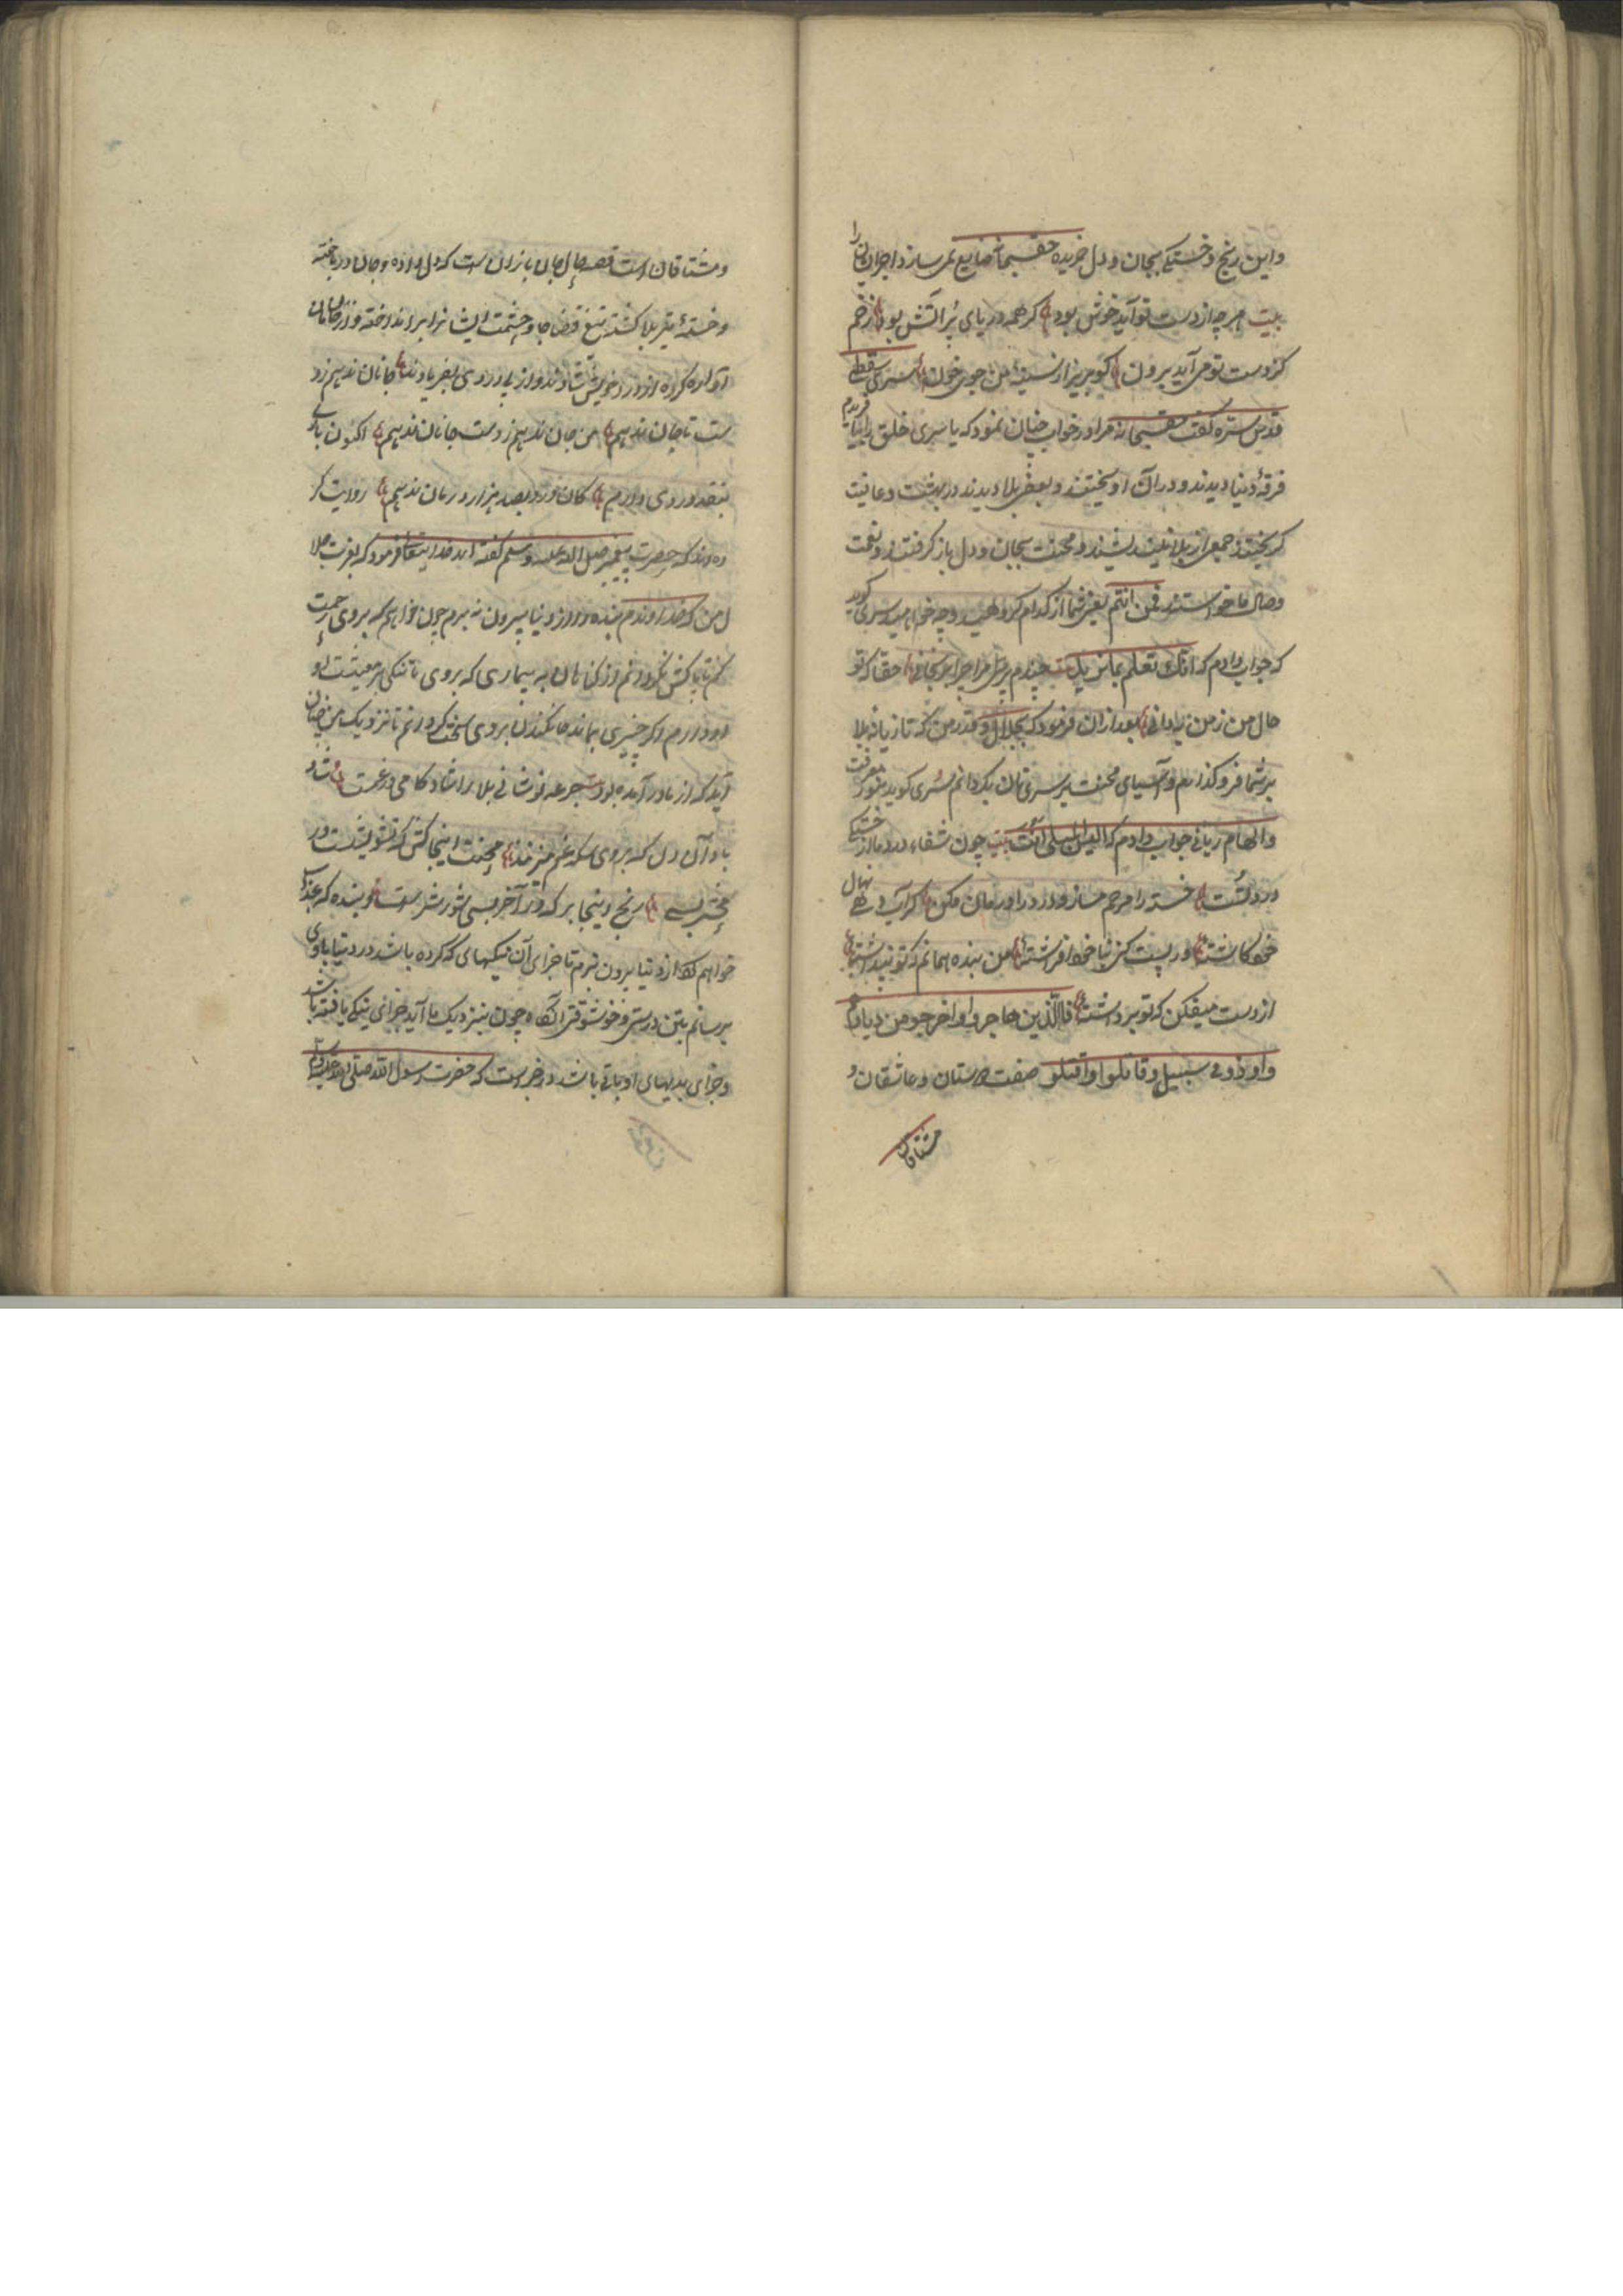 و این رنج و خستگی بجان و دل خریده حقسبحانه ضایع نمی سازد اجر ایشان را
بیت هر چه از دست تو آید خوش بود کر همه دریای پر آتش بود زخم
کز دست تو می آید برون کو بریز از سینهٔ من جوی خون سری سقطی
قدس سره گفت حقسبحانه مرا در خواب چنان نمود که یا سری خلق را بیافریدم
فرقهٔ دنیا دیدند و در آن آویختند و بعضی بلا دیدند در بهشت و عافیت
گریختند جمعی از بلا نیندیشیدند و محنت بجان و دل باز گرفتند و نعمت
وصال ما خواستند فمن انتم یعنی شما از کدام گروهید و چه خواهید سری گوید
که جواب دادم که انک تعلم بما نرید بیت چندم پرسی مرا چرا رنجانی حقا که تو
حال من ز من به دانی بعد از آن فرمود که بجلال و قدر من که تازیانه بلا
بر شما فرو گذارم و آسیای محنت بر سر تان بگردانم سری گوید بنور معرفت
و الهام ربانی جواب دادم که الیس المبلی انت بیت چون شفاء درد ما از خستگی
درد تست خسته را مرهم مساز و درد را درمان مکن گر آب دهی نهال
خود کاشتهٔ ور پست کنی بنا خود افراشتهٔ من بنده همانم که تو پنداشتهٔ
از دست میفکن که تو برداشتهٔ فالذین هاجروا و اخرجو من دیارهم
و اوذو فی سبیلی و قاتلوا و اقتلو صفت دوستان و عاشقان و
مشتاقان
و مشتاقان است قصه حال جان بازان است که دل داده و جان در باخته
و خستهٔ تیر بلا کشته تیغ قضا جاه و حشمت ایشانرا بر انداخته و از خان و مان
آواره کرده از در خویش شادند و از بی دردی بفریادند جانان ندهم زد
ست تا جان ندهم من جان ندهم ز دست جانان ندهم اکنون باری
بنقد دردی دارم کان درد بصد هزار درمان ندهم روایت کر
ده اند که حضرت پیغمبر صلی الله علیه و سلم گفته اند خدایتعالی فرمود که بعزت جلا
ل من که خداوندم بنده را از دنیا بیرون نه برم چون خواهم که بر وی رحمت
کنم تا پاکش نگردانم از گناهان به بیماری که بر وی تا تنکی بر معیشت او
او دارم اگر چیزی بماند جان کندن بر وی سخت گردانم تا نزدیک من چنان
آید که از مادر آمده بود بیت جرعه نوشانی بلا را شادکامی در غمست شاد
باد آن دل که بر وی سکه غم میزند محنت اینجا کش که تشویشیست در
محشر بسی رنج اینجا بر که در آخر بسی شور و شر است و بنده که بعذاب
خواهم که از دنیا بیرون برم تا جزای آن نیکیهای که کرده باشد در دنیا با وی
برسانم بتن درستی و خوشوقتی آنگاه چون بنزدیک ما آید جزای نیکی یافته باشد
و جزای بدیهای او باقی باشد در خبر است که حضرت رسول الله صلی الله علیه وسلم